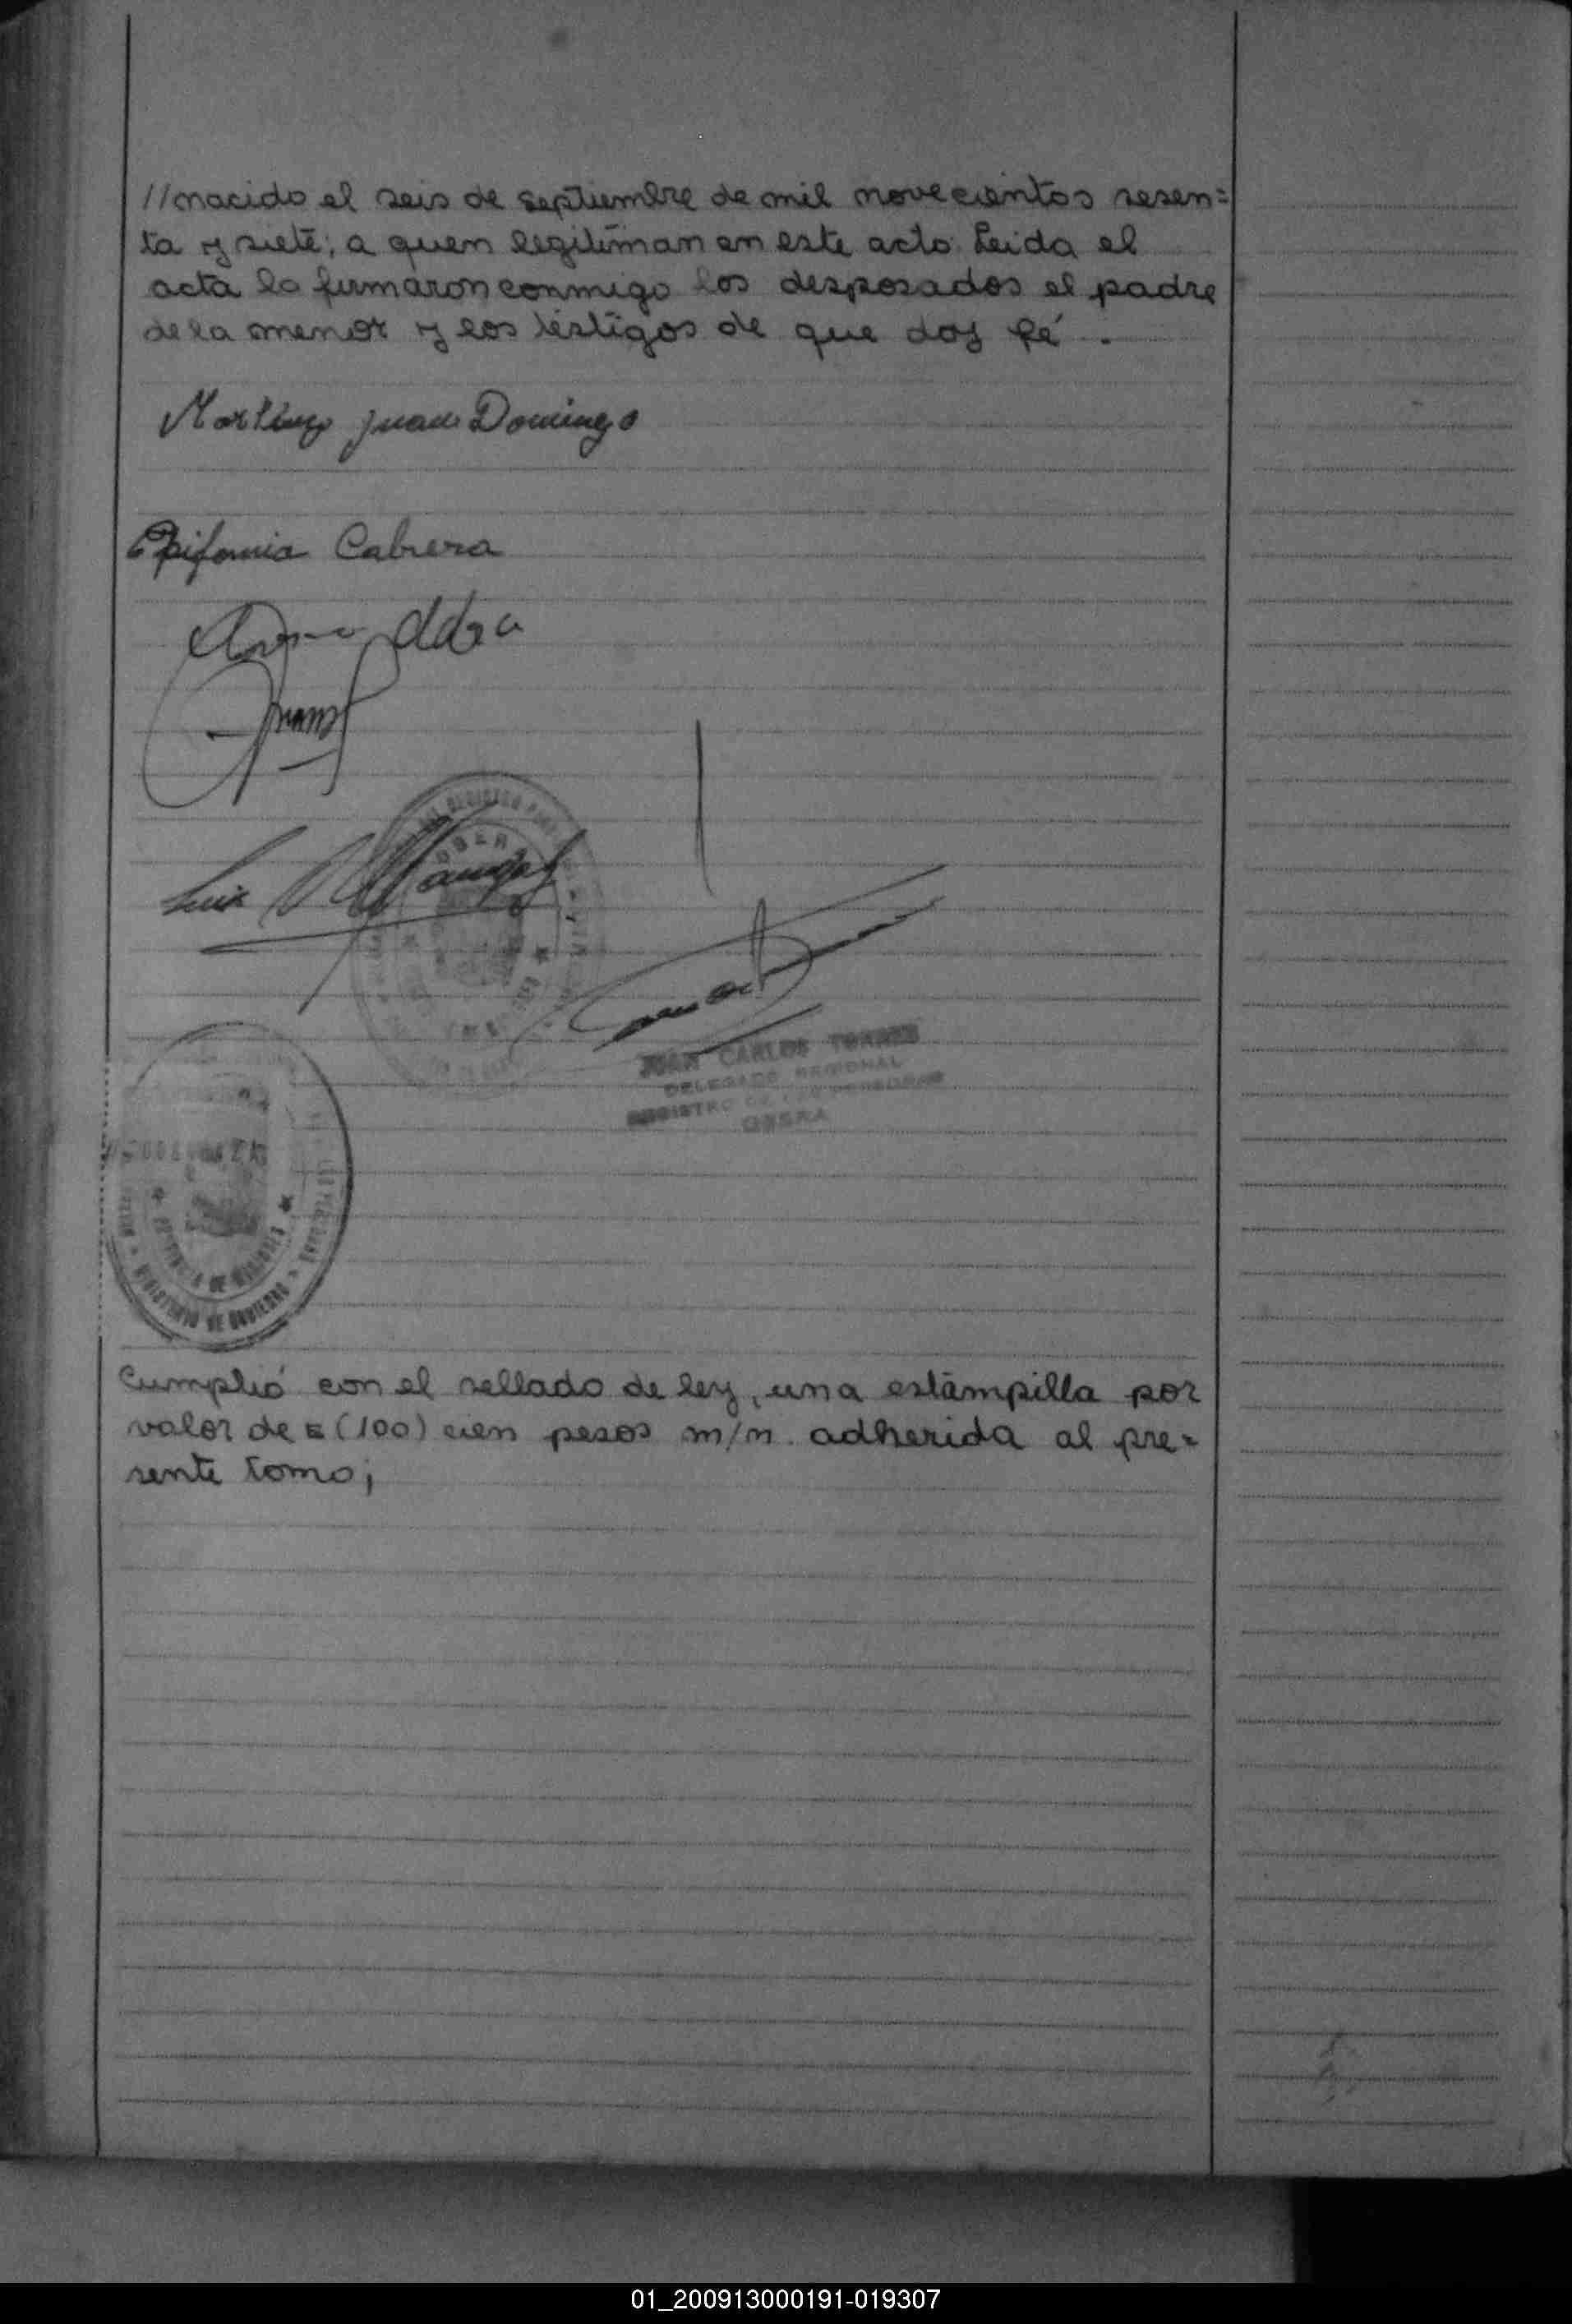 //nacido el seis de septiembre de mil novecientos sesen=
ta y siete; a quen legitiman en este acto. Leida el
acta la firmaron conmigo los desposados el padre
de la menor y los testigos de que doy fé.
Juan Domingo
Epifania Cabrera
Luis
JUAN CARLOS TORRES
DELEGADO REGIONAL
REGISTRO DE LAS PERSONAS
OBERA
PROVINCIA DE MISIONES
MINISTERIO DE GOBIERNO
Cumplió con el sellado de ley, una estampilla por
valor de (100) cien pesos m/n. adherida al pre=
sente tomo;
01_200913000191-019307